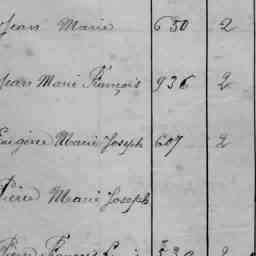 Jean Marie 650 2
Jean Marie François 936 2
Eugène Marie Joseph 607 2
Pierre Marie Joseph
Pierre François 2